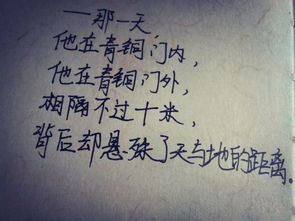 ——那一天，
他在青铜门内，
他在青铜门外，
相隔不过十米，
背后却悬殊了天与地的距离。